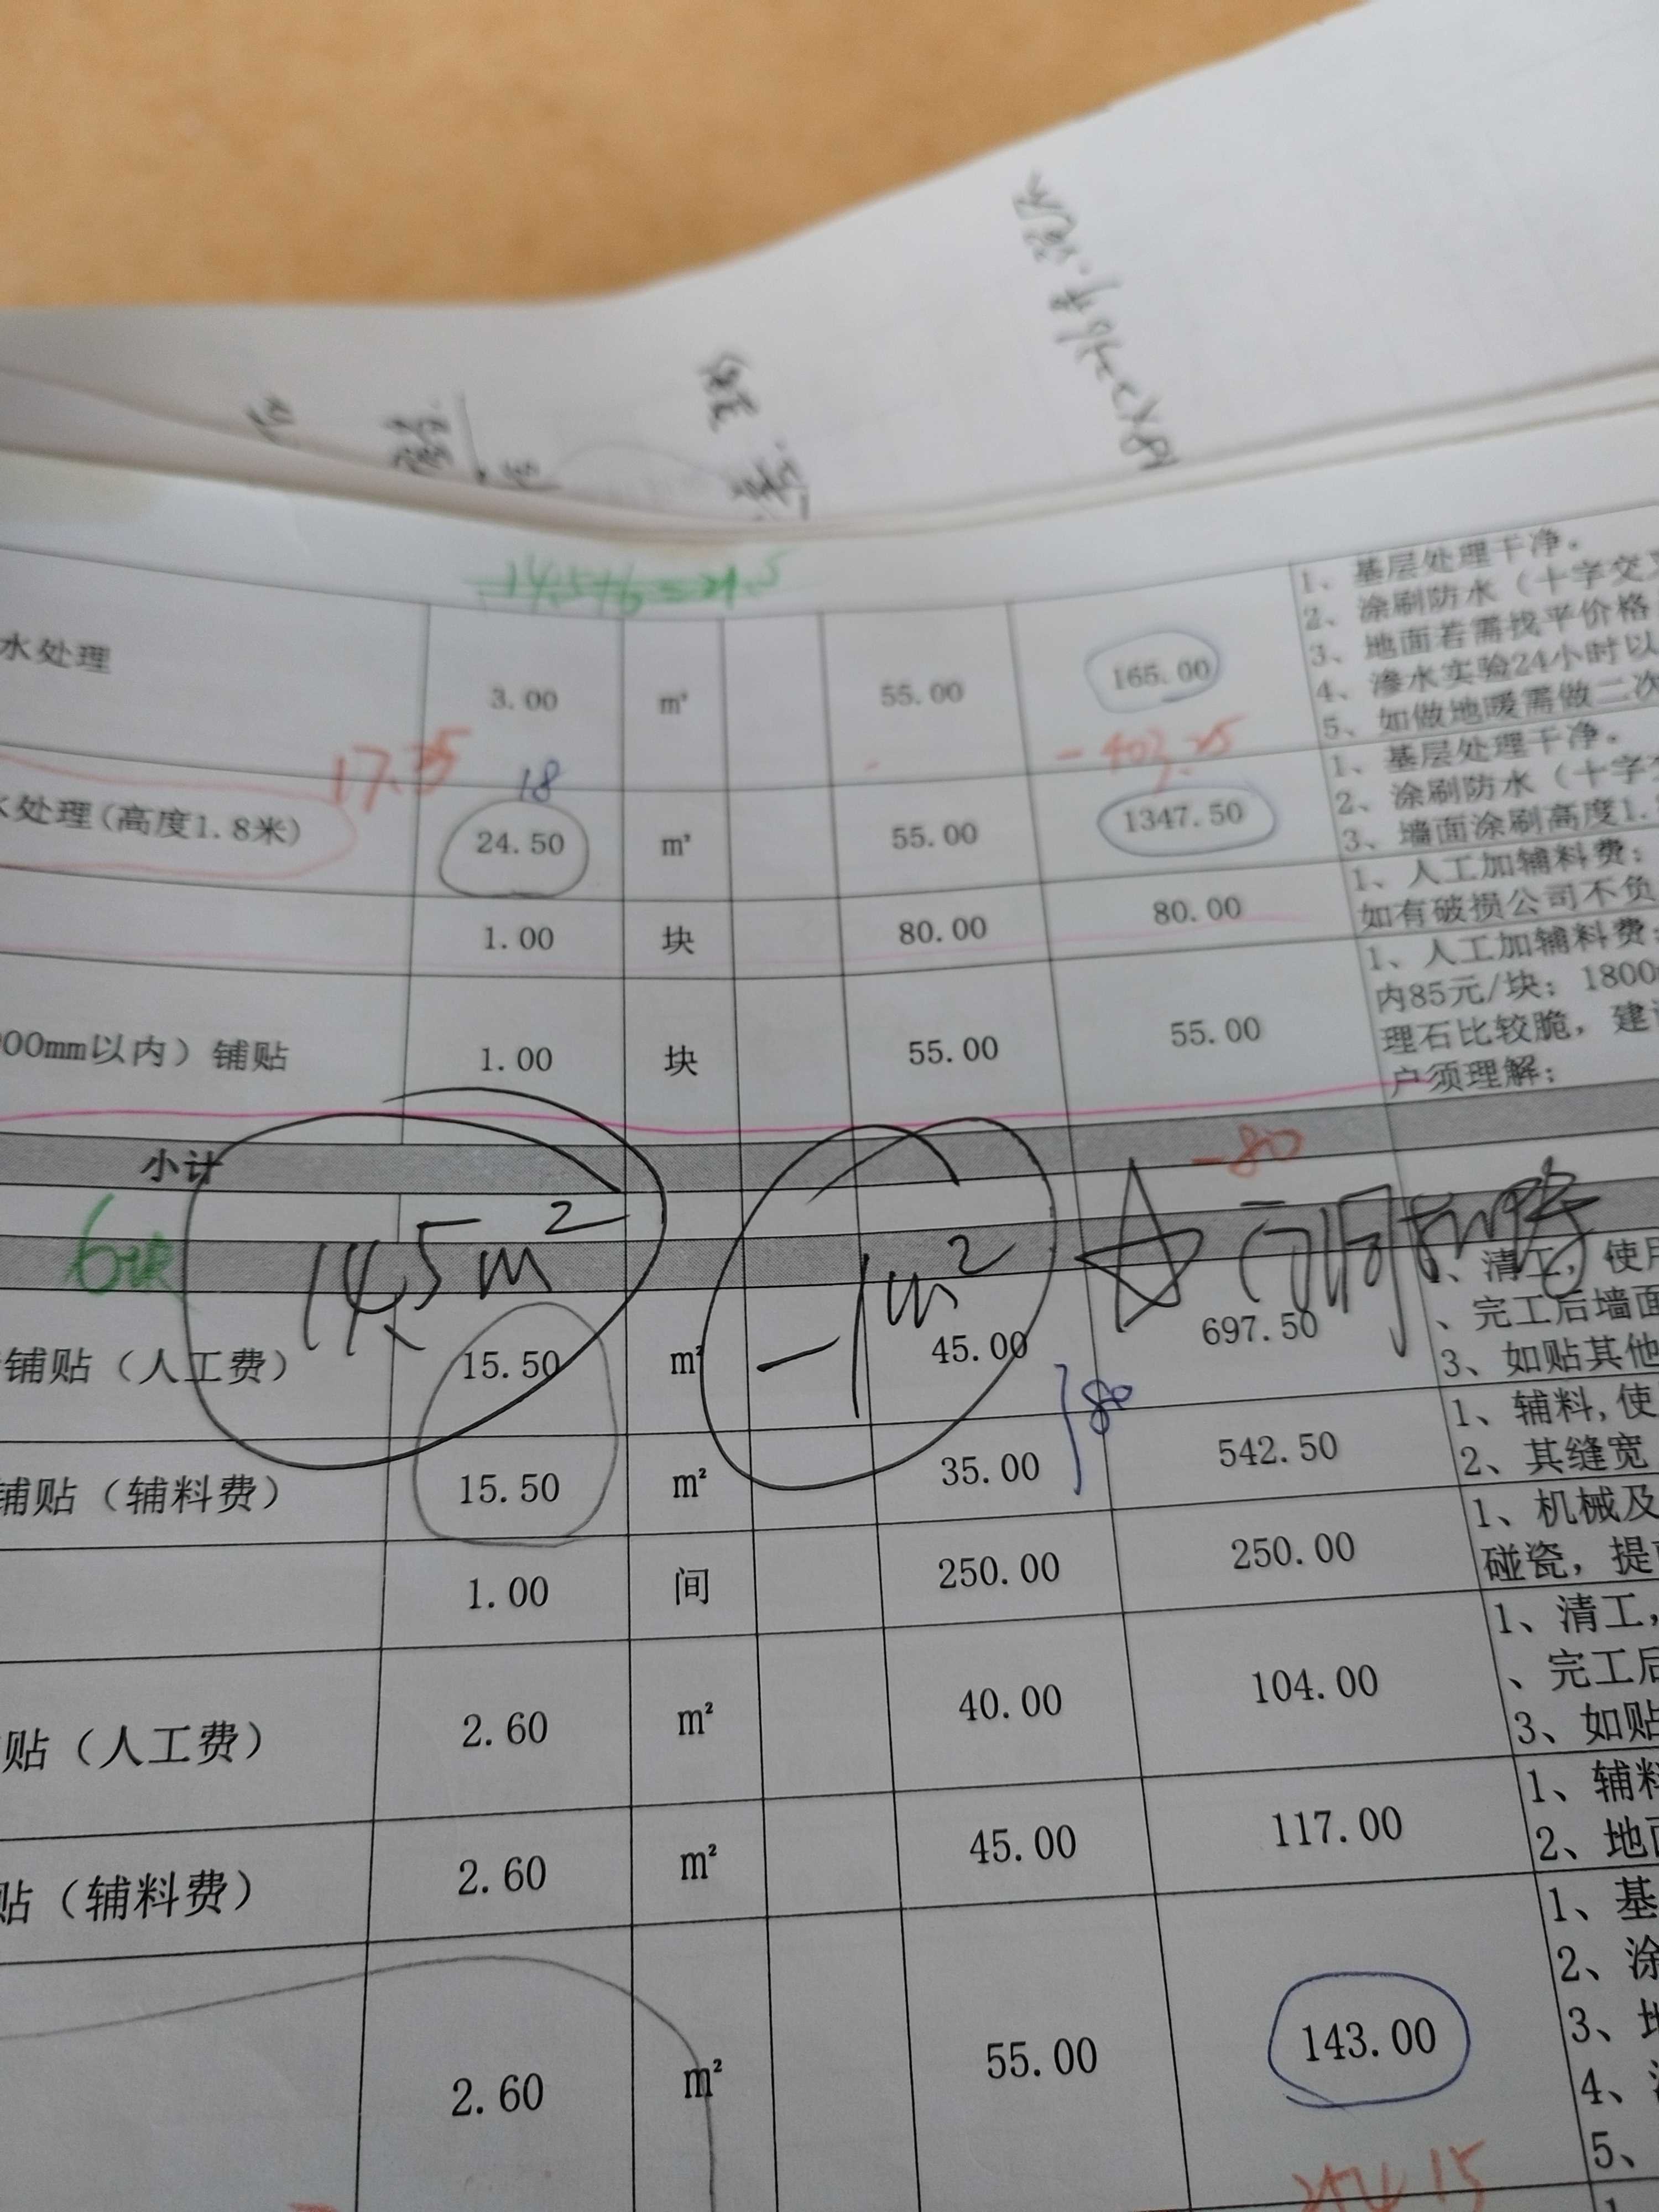 14.5+6=21.5
1、基层处理干净。
2、涂刷防水（十字交叉
水处理 3.00 m² 55.00 165.00
3、地面若需找平价格
4、渗水实验24小时以
5、如做地暖需做二次
17.35 18 -403.25
1、基层处理干净。
水处理(高度1.8米) 24.50 m² 55.00 1347.50
2、涂刷防水（十字交
3、墙面涂刷高度1.
1.00 块 80.00 80.00
1、人工加辅料费；
如有破损公司不负
00mm以内）铺贴 1.00 块 55.00 55.00
1、人工加辅料费；
内85元/块；1800
理石比较脆，建
户须理解；
小计
-80
6块 14.5m² -1m²
铺贴（人工费） 15.50 m² 45.00 697.50
、清工，使用
、完工后墙面
3、如贴其他
80
铺贴（辅料费） 15.50 m² 35.00 542.50
1、辅料,使
2、其缝宽
1.00 间 250.00 250.00
1、机械及
碰瓷，提
贴（人工费） 2.60 m² 40.00 104.00
1、清工，
、完工后
3、如贴
贴（辅料费） 2.60 m² 45.00 117.00
1、辅料
2、地面
2.60 m² 55.00 143.00
1、基
2、涂
3、地
4、
5、